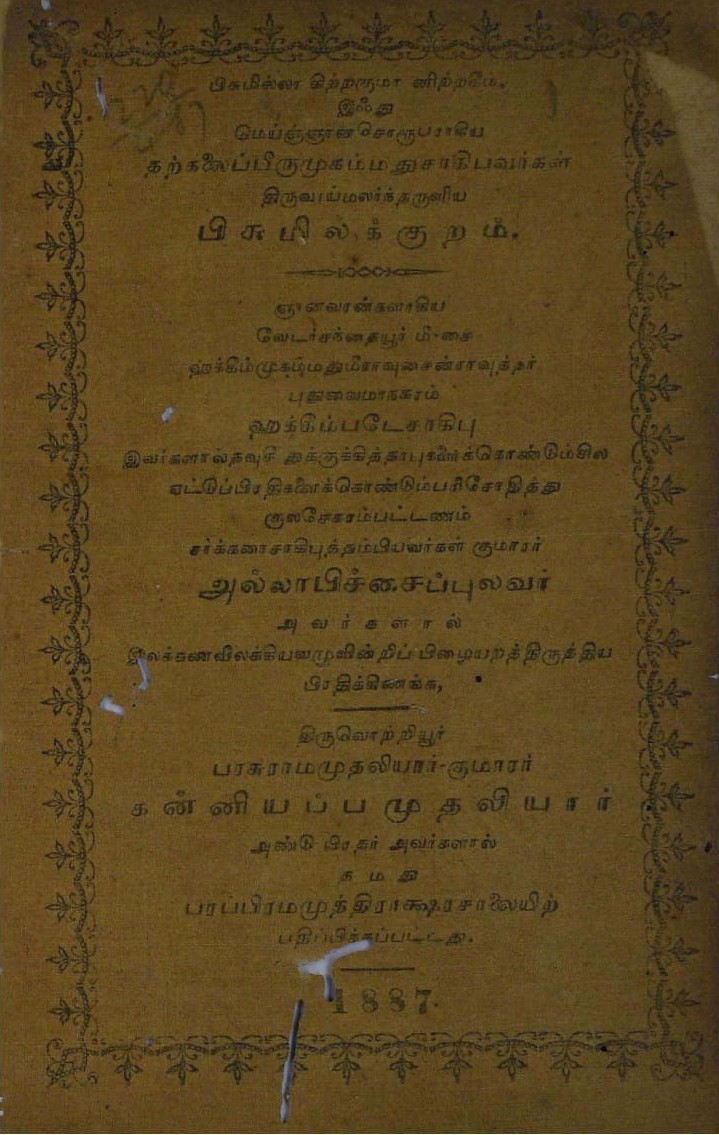 பிசுமில்லா கிற்றகுமா னிற்றகீம்.
இஃது
மெய்ஞ்ஞானசொரூபராகிய
தற்கலைப்பீருமுகம்மதுசாகிபவர்கள்
திருவாய்மலர்ந்தருளிய
பிசுமிலக்குறம்.
ஞானவரன்களாகிய
வேடர்சந்தையூர் மீ-சை
ஹக்கீம்முகம்மதுமீராவுசைன்ராவுத்தர்
புதுவைமாநகரம்
ஹக்கீம்படேசாகிபு
இவர்களால்தவுசீ துக்குக்கித்தாபுகளைக்கொண்டும்சில
ஏட்டுப்பிரதிகளைக்கொண்டும்பரிசோதித்து
குலசேகரம்பட்டணம்
சர்க்கரைசாகிபுத்தம்பியவர்கள் குமாரர்
அல்லாபிச்சைப்புலவர்
அவர்களால்
இலக்கணவிலக்கியவழுவின்றிப் பிழையறத்திருத்திய
பிரதிக்கிணங்க,
திருவொற்றியூர்
பரசுராமமுதலியார்-குமாரர்
கன்னியப்பமுதலியார்
அண்டு பிரதர் அவர்களால்
தமது
பரப்பிரமமுத்திராக்ஷரசாலையிற்
பதிப்பிக்கப்பட்டது.
1887.